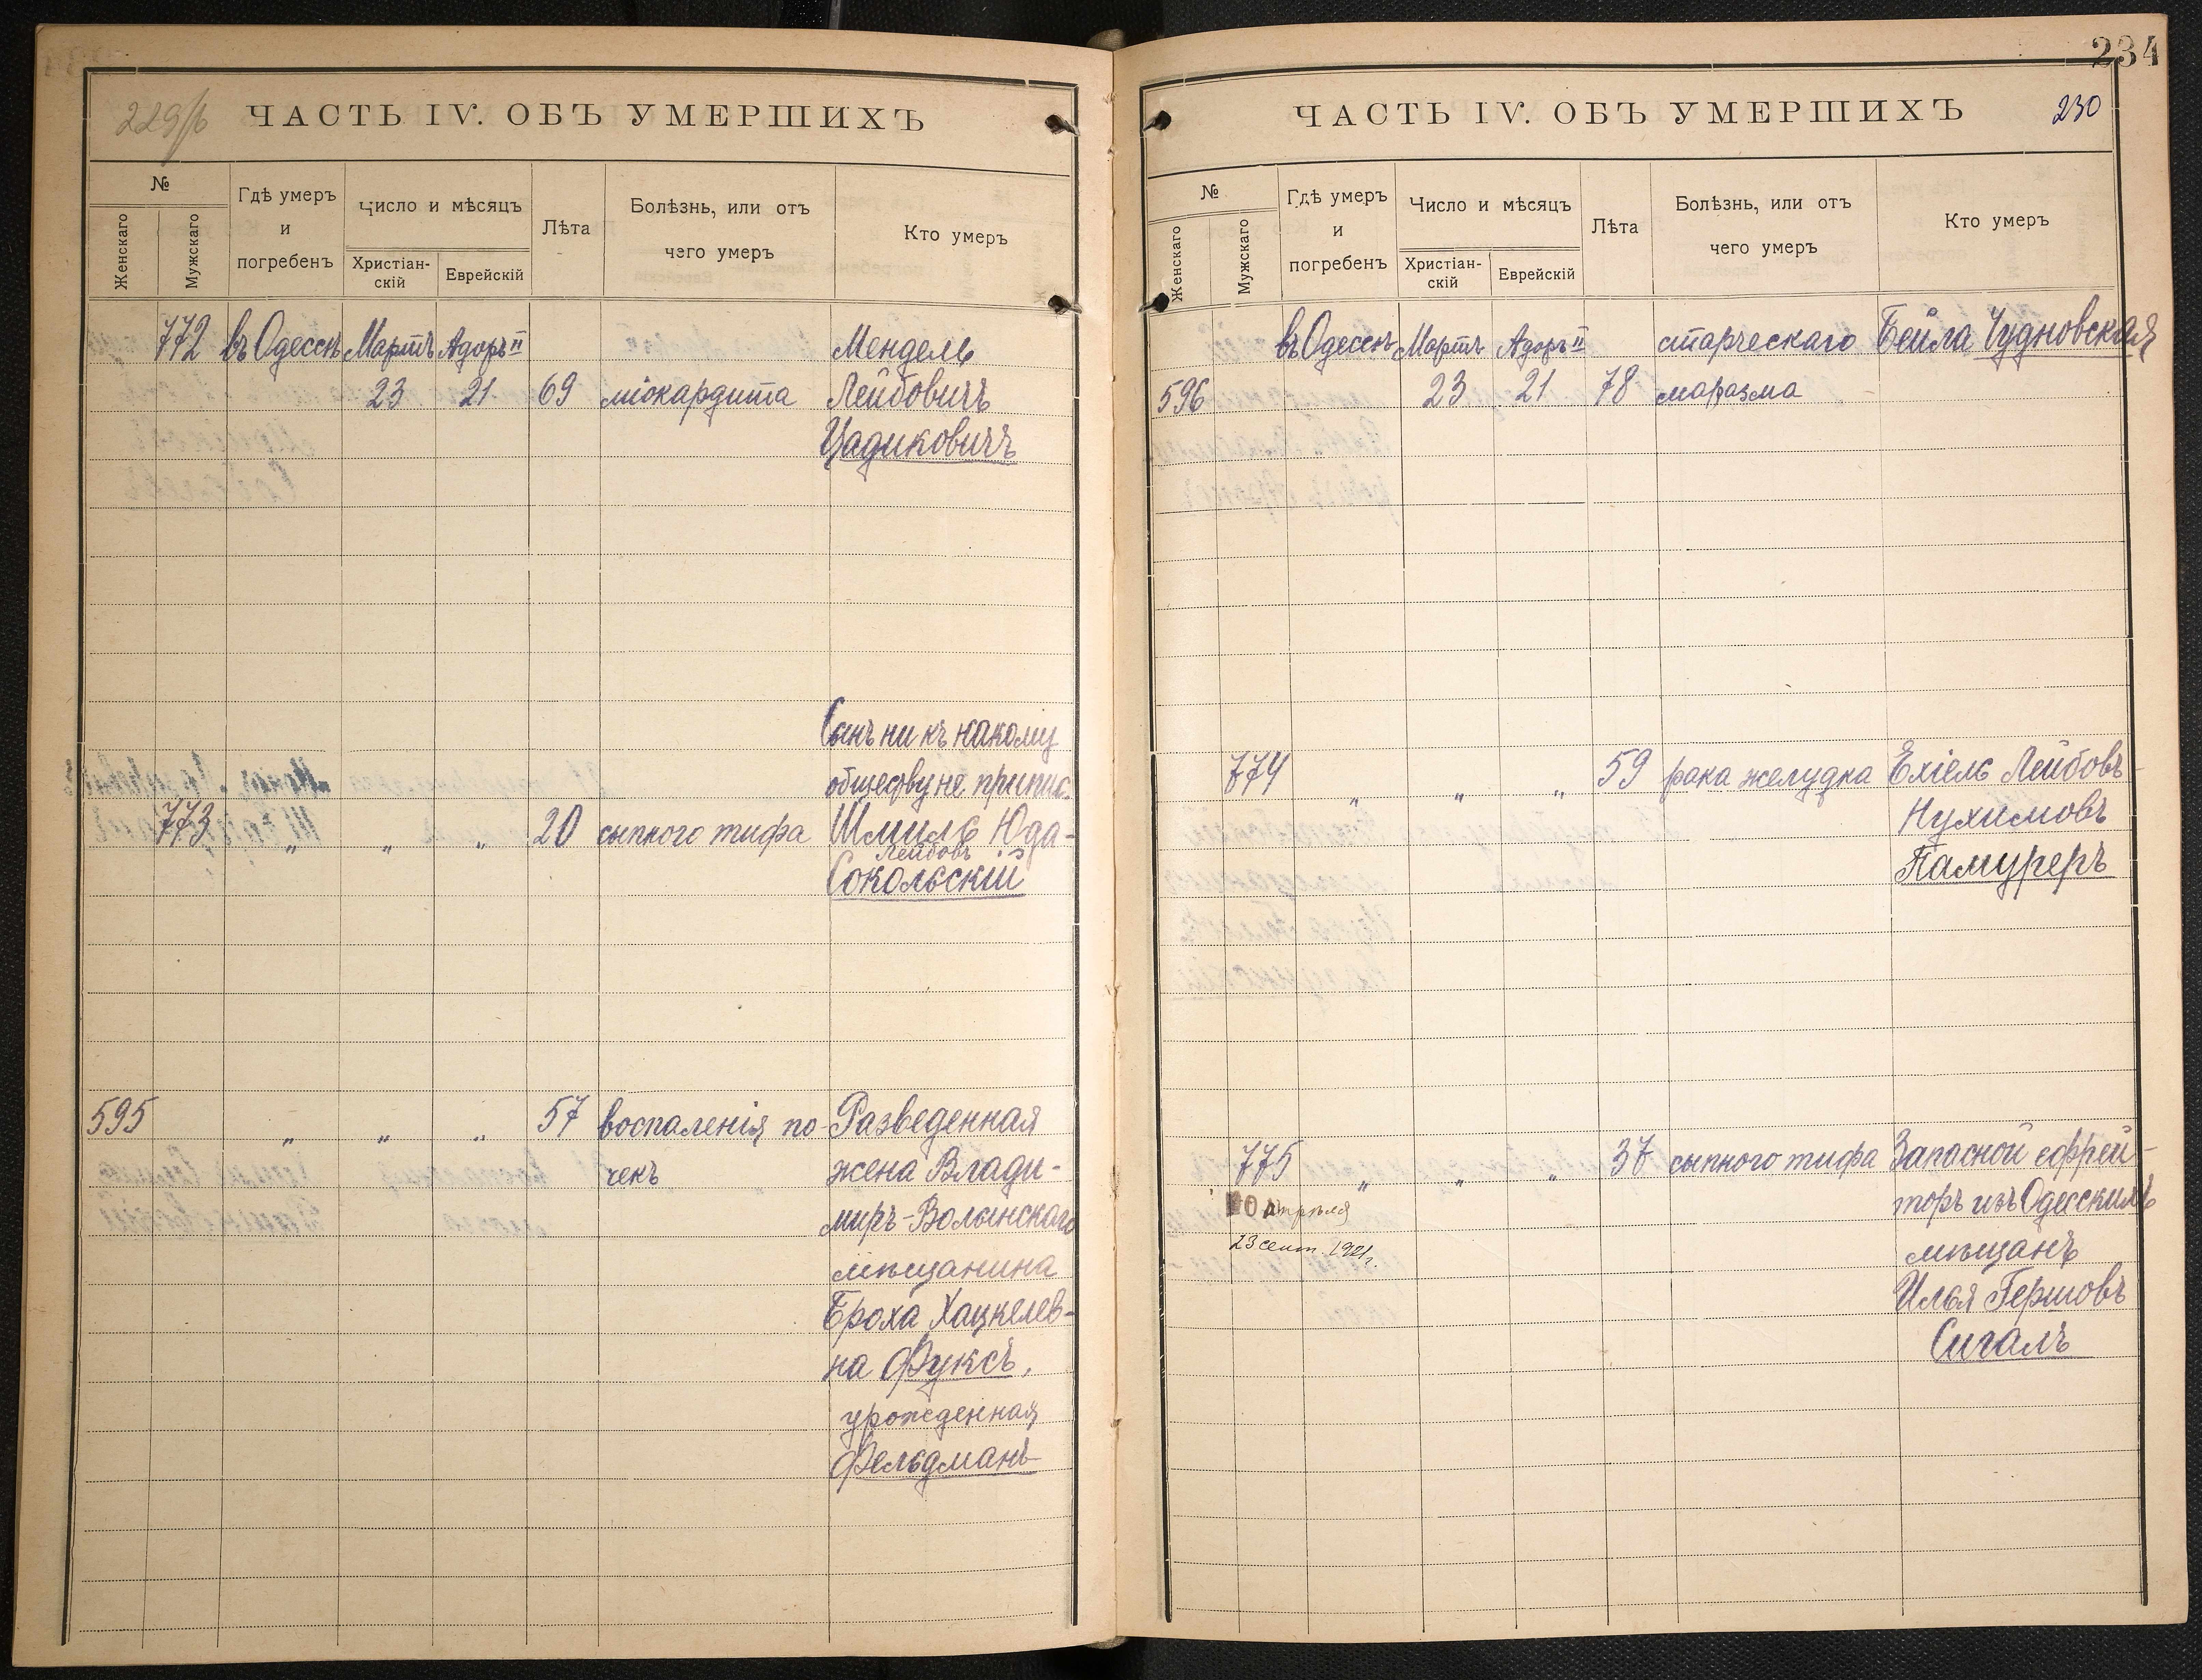 229/б
ЧАСТЬ IV. ОБЪ УМЕРШИХЪ
№
Женскаго
Мужскаго
Гдѣ умеръ
и
погребенъ
Число и мѣсяцъ
Христіан-
скій
Еврейскій
Лѣта
Болѣзнь, или отъ
чего умеръ
Кто умеръ
772 въ Одессѣ Мартъ Адоръ II Мендель
23 21 69 міокардита Лейбовичъ
Цадиковичъ
Сынъ ни къ какому
обществу не припис.
773 " " " 20 сыпного тифа Шмиль Юда-
Лейбовъ
Сокольскій
595 " " " 57 воспаленія по- Разведенная
чекъ жена Влади-
миръ-Волынскаго
мѣщанина
Броха Хацкелев-
на Фуксъ,
урожденная
Фельдманъ
234
ЧАСТЬ IV. ОБЪ УМЕРШИХЪ
230
№
Женскаго
Мужскаго
Гдѣ умеръ
и
погребенъ
Число и мѣсяцъ
Христіан-
скій
Еврейскій
Лѣта
Болѣзнь, или отъ
чего умеръ
Кто умеръ
въ Одессѣ Мартъ Адоръ II старческаго Бейла Чудновская
596 23 21 78 маразма
774 " " " 59 рака желудка Ехіель Лейбовъ-
Нухимовъ
Памуреръ
775 " " " 37 сыпного тифа Запасной ефрей-
торъ изъ Одесскихъ
мѣщанъ
Илья Гершовъ
Сигалъ
23 сент. 1921 г.